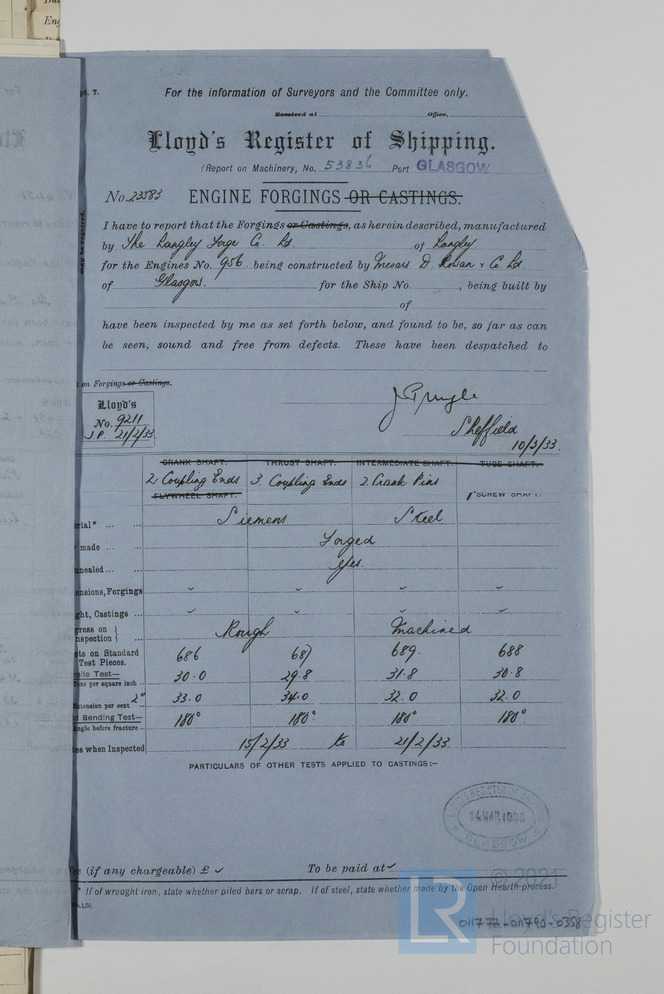 pt. 7.
For the information of Surveyors and the Committee only.
Received at Office,
Lloyd's Register of Shipping.
(Report on Machinery, No. 53836 Port GLASGOW
No. 23583 ENGINE FORGINGS OR CASTINGS.
I have to report that the Forgings or Castings, as herein described, manufactured
by The Langley Forge Co. Ld. of Langley
for the Engines No. 956 being constructed by Messrs D. Rowan & Co Ld
of Glasgow. for the Ship No. , being built by
of
have been inspected by me as set forth below, and found to be, so far as can
be seen, sound and free from defects. These have been despatched to
on Forgings or Castings.
Lloyd's
No. 9211
J.P. 21/2/33
J Pringle
Sheffield
10/3/33.
CRANK SHAFT. THRUST SHAFT. INTERMEDIATE SHAFT. TUBE SHAFT.
2 Coupling Ends 3 Coupling Ends 2 Crank Pins
FLYWHEEL SHAFT. SCREW SHAFT.
erial* Siemens Steel
made Forged
nnealed Yes.
ensions, Forgings
ght, Castings
gress on nspection Rough Machined
ts on Standard Test Pieces. 686 687 689. 688
Tons per square inch 30.0 29.8 31.8 30.8
Extension per cent 2" 33.0 34.0 32.0 32.0
d Bending Test— 180° 180° 180° 180°
ngle before fracture
es when Inspected 15/2/33 to 21/2/33.
PARTICULARS OF OTHER TESTS APPLIED TO CASTINGS:—
14 MAR 1933
GLASGOW
(if any chargeable) £ To be paid at
* If of wrought iron, state whether piled bars or scrap. If of steel, state whether made by the Open Hearth process.
© 2021
LR Lloyd's Register
Foundation
011772-011790-0358